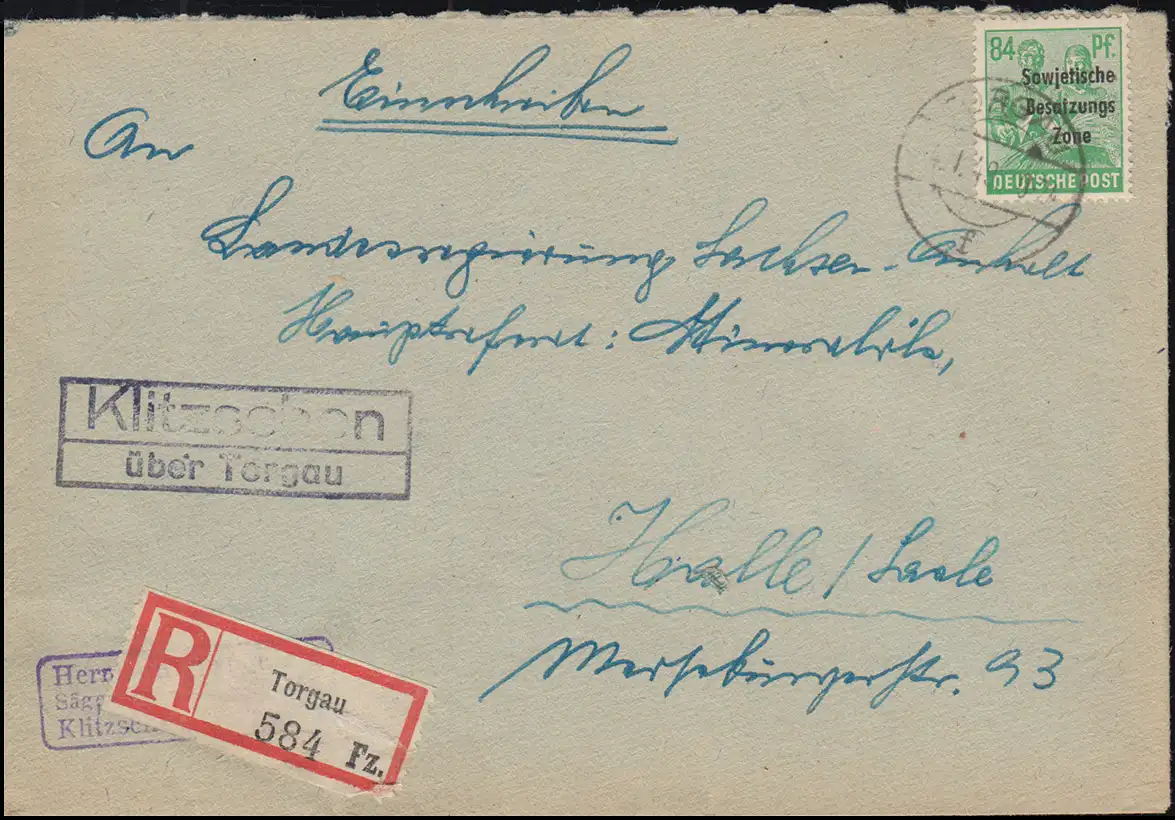 Einschreiben
84 Pf.
Sowjetische
Besatzungs
Zone
DEUTSCHE POST
An
Landesregierung Sachsen-Anhalt
Hauptreferat: Mineralöle,
Klitzschen
über Torgau
Halle/Saale
Merseburgerstr. 93
R
Torgau
584 Fz.
Herr
Klitzsch